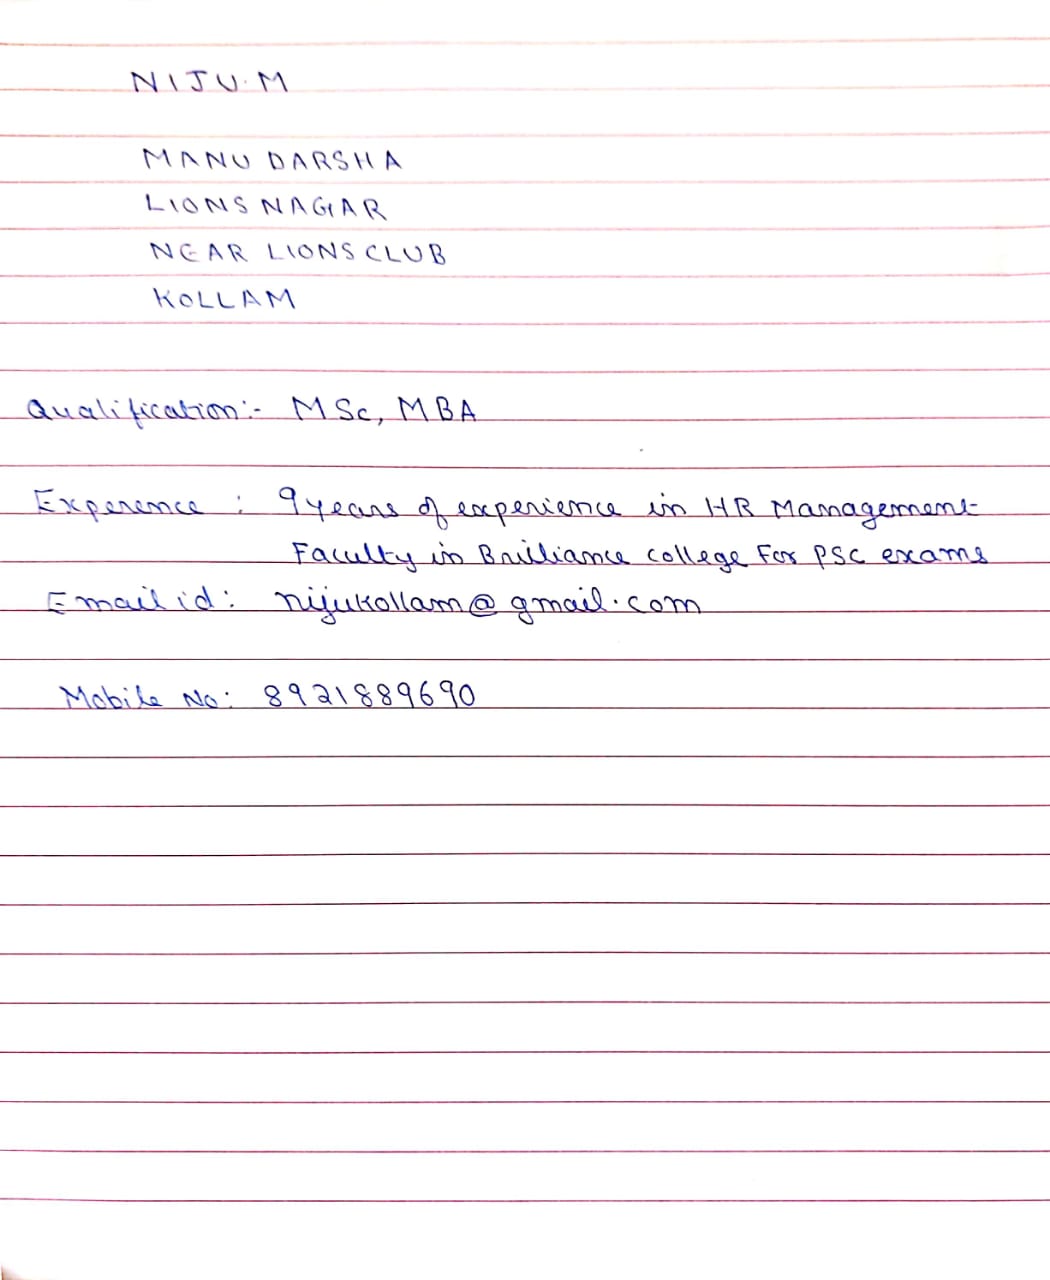 NIJU.M
MANU DARSHA
LIONS NAGAR
NEAR LIONS CLUB
KOLLAM
Qualification:- MSc, MBA
Experence : 9 years of experience in HR Management
Faculty in Brilliance college For PSC exams
Email id: nijukollam@gmail.com
Mobile No: 8921889690